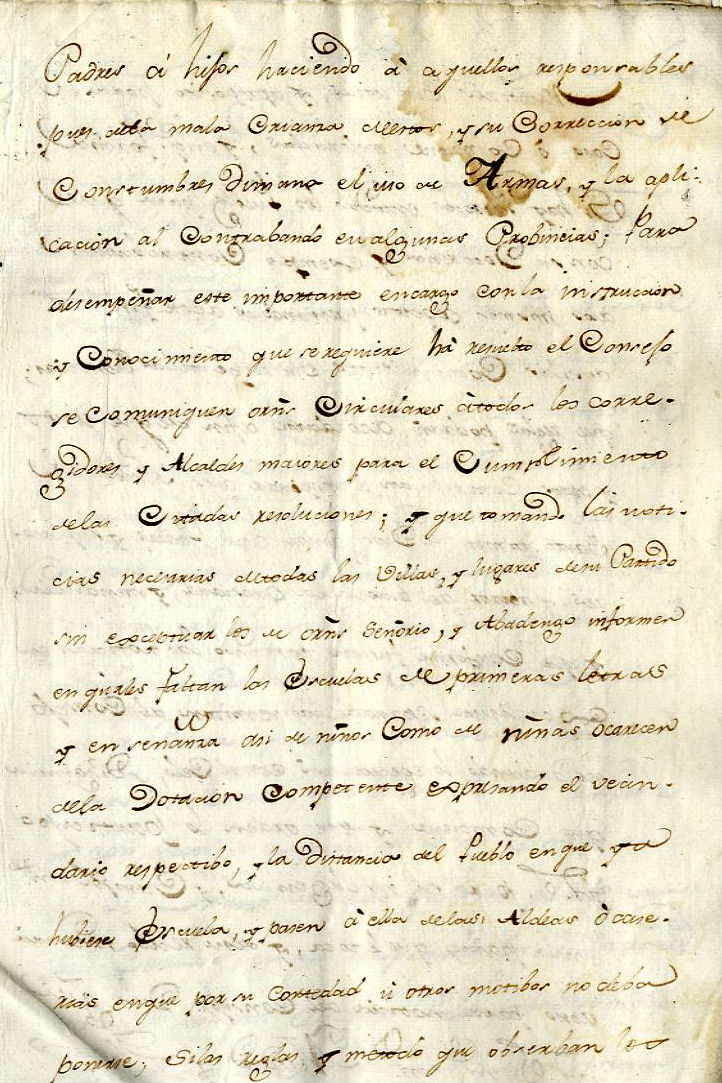 Padres á hijos haciendo à aquellos responsables
pues dela mala Crianza destos, y su Correccion de
Constumbres Dimana el uso de Armas, y la apli-
cacion al Contrabando en algunas Probincias; Para
desempeñar este importante encargo con la instruccion
y Conocimiento que se requiere hà resuelto el Consejo
se Comuniquen orñs Circulares àtodos los corre-
gidores y Alcaldes maiores para el Cumplimiento
delas Citadas resoluciones; y que tomando las noti-
cias necesarias detodas las Villas, y lugares desu Partido
sin exceptuar los de orñs Señorio, y Abadengo informen
en quales faltan las Escuelas de primeras letras
y enseñanza asi de niños Como de niñas ocarecen
dela Dotacion Competente expresando el vecin-
dario respectibo, y la Distancia del Pueblo enque ya
hubiese Escuela, y pasen à ella delas Aldeas òcase-
rias enque por su Cortedad ù otros motibos no deba
ponerse; Silas reglas, y metodo que obserban los